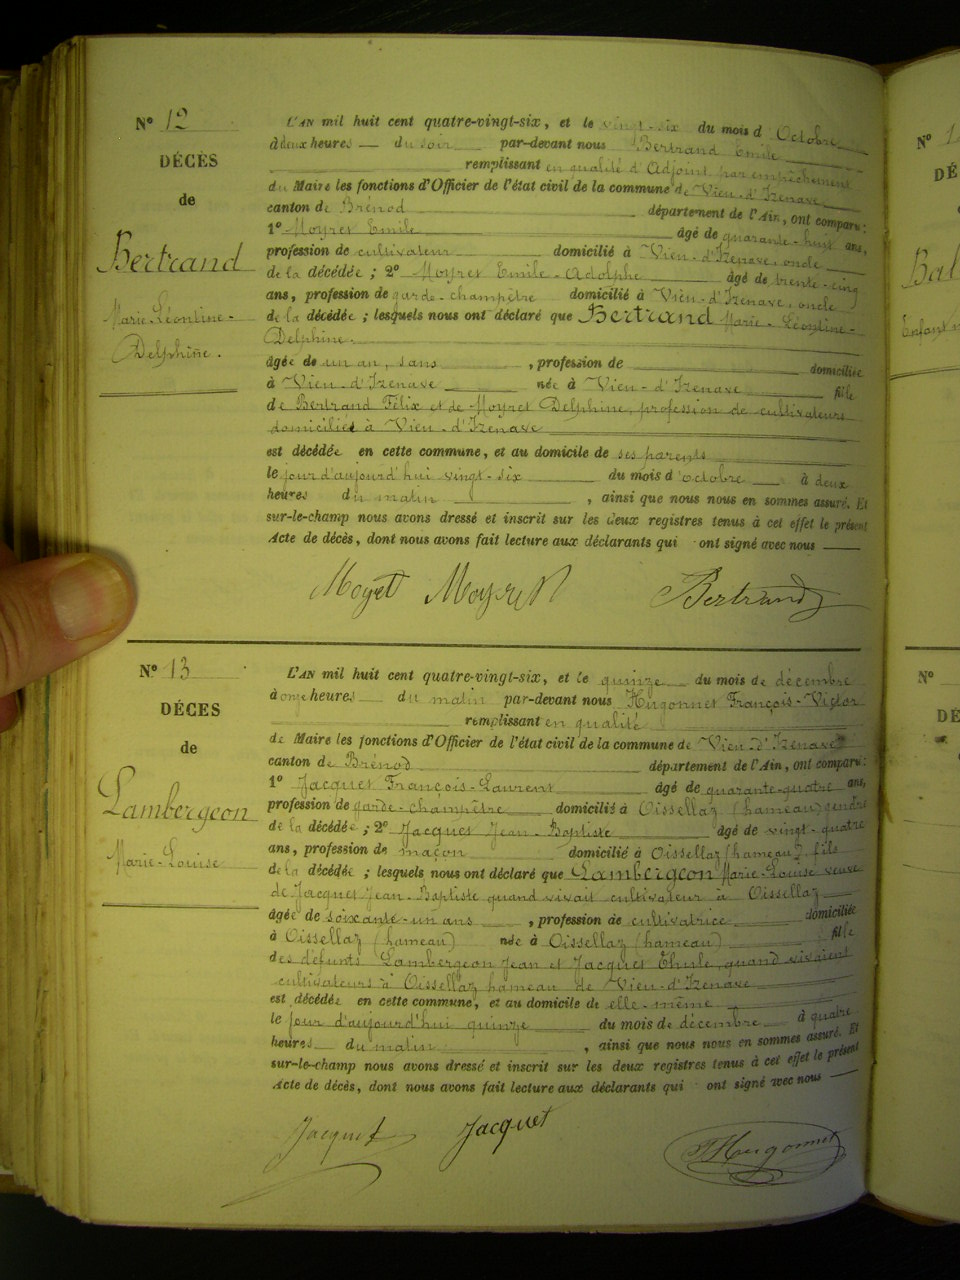 Nº 12
DÉCÈS
de
Bertrand
Marie-Léontine-
Delphine.
L'AN mil huit cent quatre-vingt-six, et le vingt-six du mois d'Octobre
à deux heures — du soir par-devant nous Bertrand Emile
remplissant en qualité d'Adjoint par empêchement
du Maire les fonctions d'Officier de l'état civil de la commune de Vieu-d'Izenave
canton de Brénod département de l'Ain, ont comparu:
1º Moyret Emile âgé de quarante-huit ans,
profession de cultivateur domicilié à Vieu-d'Izenave, oncle
de la décédée; 2º Moyret Emile-Adolphe âgé de trente-cinq
ans, profession de garde-champêtre domicilié à Vieu-d'Izenave, oncle
de la décédée; lesquels nous ont déclaré que Bertrand Marie-Léontine-
Delphine.
âgée de un an, sans , profession de domiciliée
à Vieu-d'Izenave née à Vieu-d'Izenave fille
de Bertrand Félix et de Moyret Delphine, profession de cultivateurs
domiciliés à Vieu-d'Izenave
est décédée en cette commune, et au domicile de ses parents
le jour d'aujourd'hui vingt-six du mois d'octobre à deux
heures du matin , ainsi que nous nous en sommes assuré. Et
sur-le-champ nous avons dressé et inscrit sur les deux registres tenus à cet effet le présent
Acte de décès, dont nous avons fait lecture aux déclarants qui ont signé avec nous
Moyret Bertrand
Nº 13
DÉCES
de
Lambergeon
Marie-Louise
L'AN mil huit cent quatre-vingt-six, et le quinze du mois de décembre
à onze heures du matin par-devant nous Hugonnet François-Victor
remplissant en qualité
de Maire les fonctions d'Officier de l'état civil de la commune de Vieu-d'Izenave
canton de Brénod département de l'Ain, ont comparu:
1º Jacquet François-Laurent âgé de quarante-quatre ans,
profession de garde-champêtre domicilié à Oissellaz (hameau) gendre
de la décédée; 2º Jacquet Jean-Baptiste âgé de vingt-quatre
ans, profession de maçon domicilié à Oissellaz (hameau), fils
de la décédée; lesquels nous ont déclaré que Lambergeon Marie-Louise veuve
de Jacquet Jean-Baptiste quand vivait cultivateur à Oissellaz
âgée de soixante-un ans , profession de cultivatrice domiciliée
à Oissellaz (hameau) née à Oissellaz (hameau) fille
des défunts Lambergeon Jean et Jacquet quand vivaient
cultivateurs à Oissellaz hameau de Vieu-d'Izenave
est décédée en cette commune, et au domicile de elle-même
le jour d'aujourd'hui quinze du mois de décembre à quatre
heures du matin , ainsi que nous nous en sommes assuré. Et
sur-le-champ nous avons dressé et inscrit sur les deux registres tenus à cet effet le présent
Acte de décès, dont nous avons fait lecture aux déclarants qui ont signé avec nous
Jacquet Jacquet Hugonnet